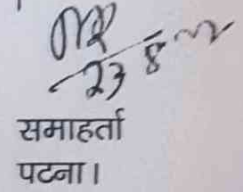 23 8
समाहर्ता
पटना।